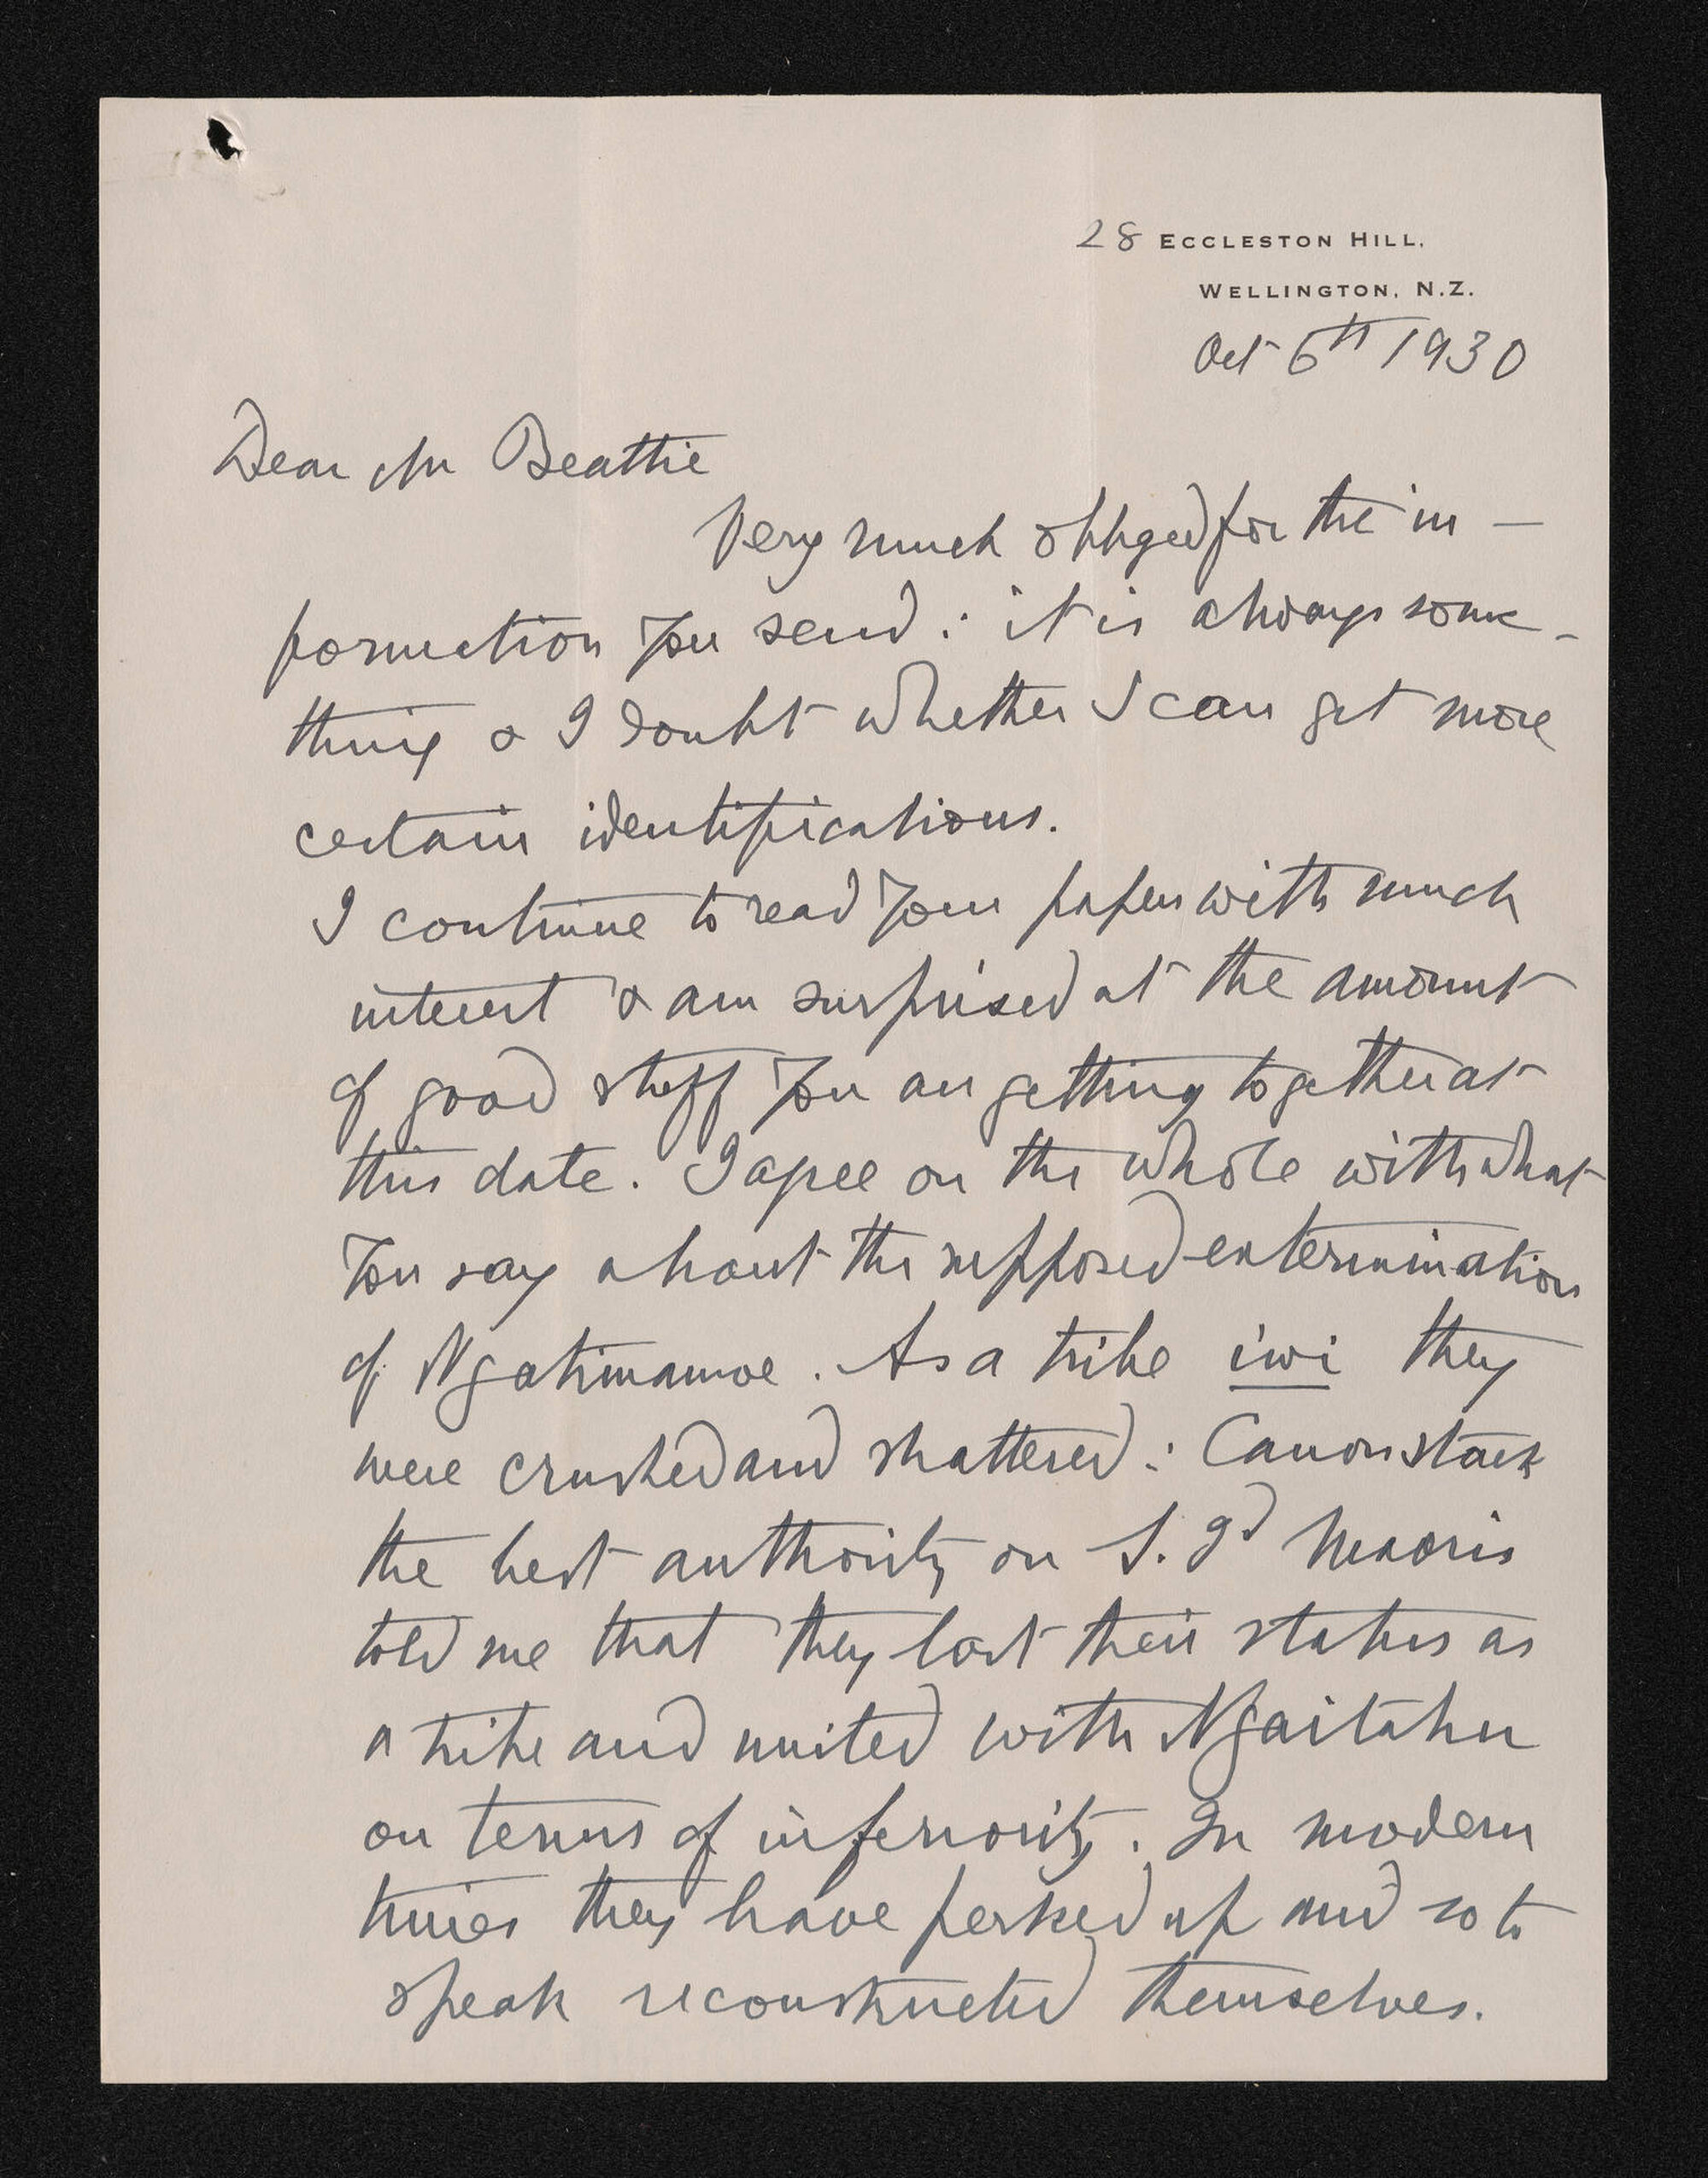 28 ECCLESTON HILL,
WELLINGTON, N.Z.
Oct 6th 1930
Dear Mr Beattie
Very much obliged for the in -
formation you send : it is always some -
thing & I doubt whether I can get more
certain identifications.
I continue to read your papers with much
interest & am surprised at the amount
of good stuff you are getting together at
this date. I agree on the whole with what
you say about the supposed extermination
of Ngatimamoe. As a tribe iwi they
were crushed and shattered : Canon Stack
the best authority on S. Id Maoris
told me that they lost their status as
a tribe and united with Ngaitahu
on terms of inferiority. In modern
times they have perked up and so to
speak reconstructed themselves.